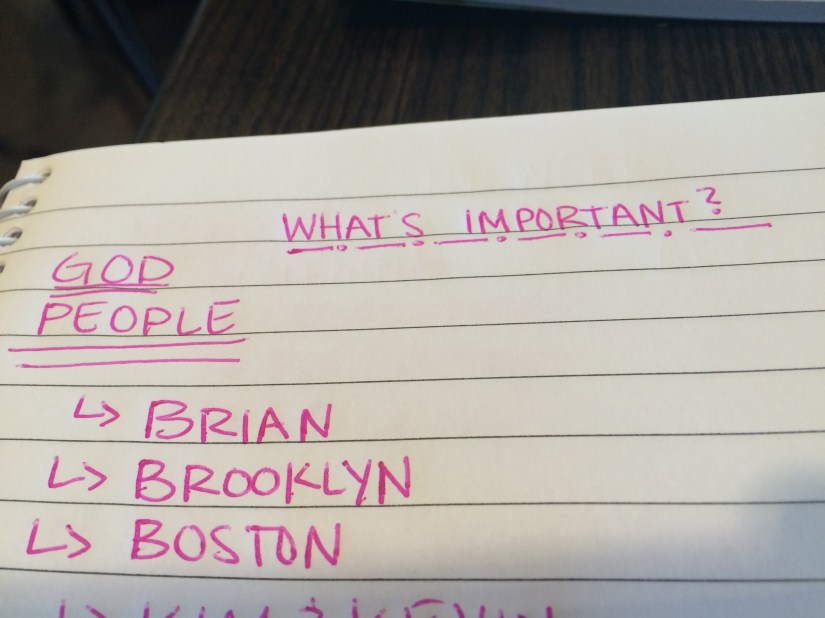 WHAT'S IMPORTANT?
GOD
PEOPLE
↳ BRIAN
↳ BROOKLYN
↳ BOSTON